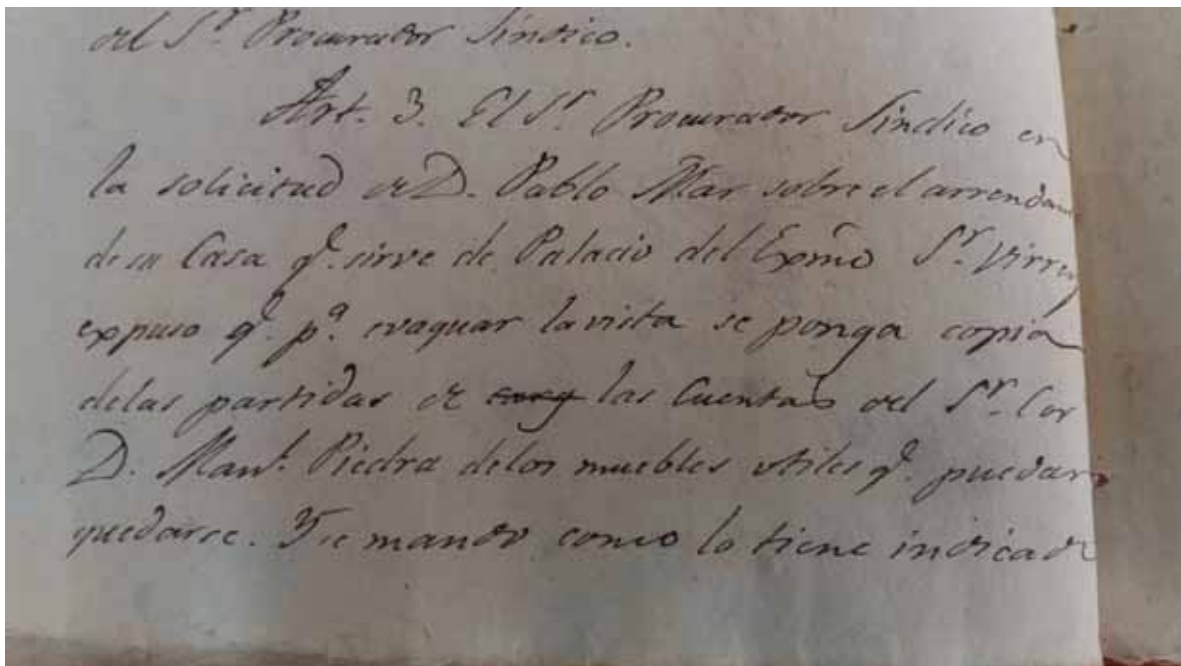 del Sr. Procurador Sindico.
Art. 3. El Sr. Procurador Sindico en
la solicitud de D. Pablo Mar sobre el arrendam
de su Casa q. sirve de Palacio del Exmo Sr. Virrey
expuso q. pa. evaquar la vista se ponga copia
delas partidas de las Cuentas del Sr. Cor
D. Manl. Piedra delos muebles utiles q. puedan
quedarse. Y se mando como lo tiene indicado